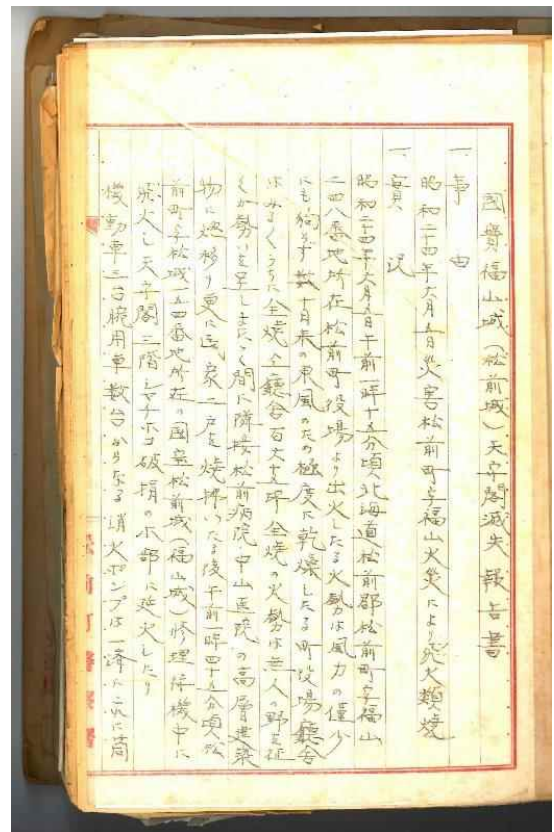 國寳福山城（松前城）天守閣滅失報告書
一、事由
昭和二十四年六月五日災害松前町字福山火災により飛火類焼
一、實況
昭和二十四年六月五日午前一時十五分頃北海道松前郡松前町字福山
二四八番地所在松前町役場より出火したる火勢は風力の僅少
にも拘らず数十日来の東風のため極度に乾燥したる町役場廳舎
はみるくうちに全焼し廳舎百六十五坪全焼の火勢は無人の野を征
くが勢いを呈しまたたく間に隣接松前病院中山医院の高層建築
物に燃移り更に民家二戸を焼拂いたる後午前一時四十五分頃松
前町字松城一四四番地所在の國宝松前城（福山城）修理待機中に
飛火し天守閣三階シャチホコ破損の小部に延火したり
機動車三台腕用車数台からなる消火ポンプは一湾にこれに筒
松前町